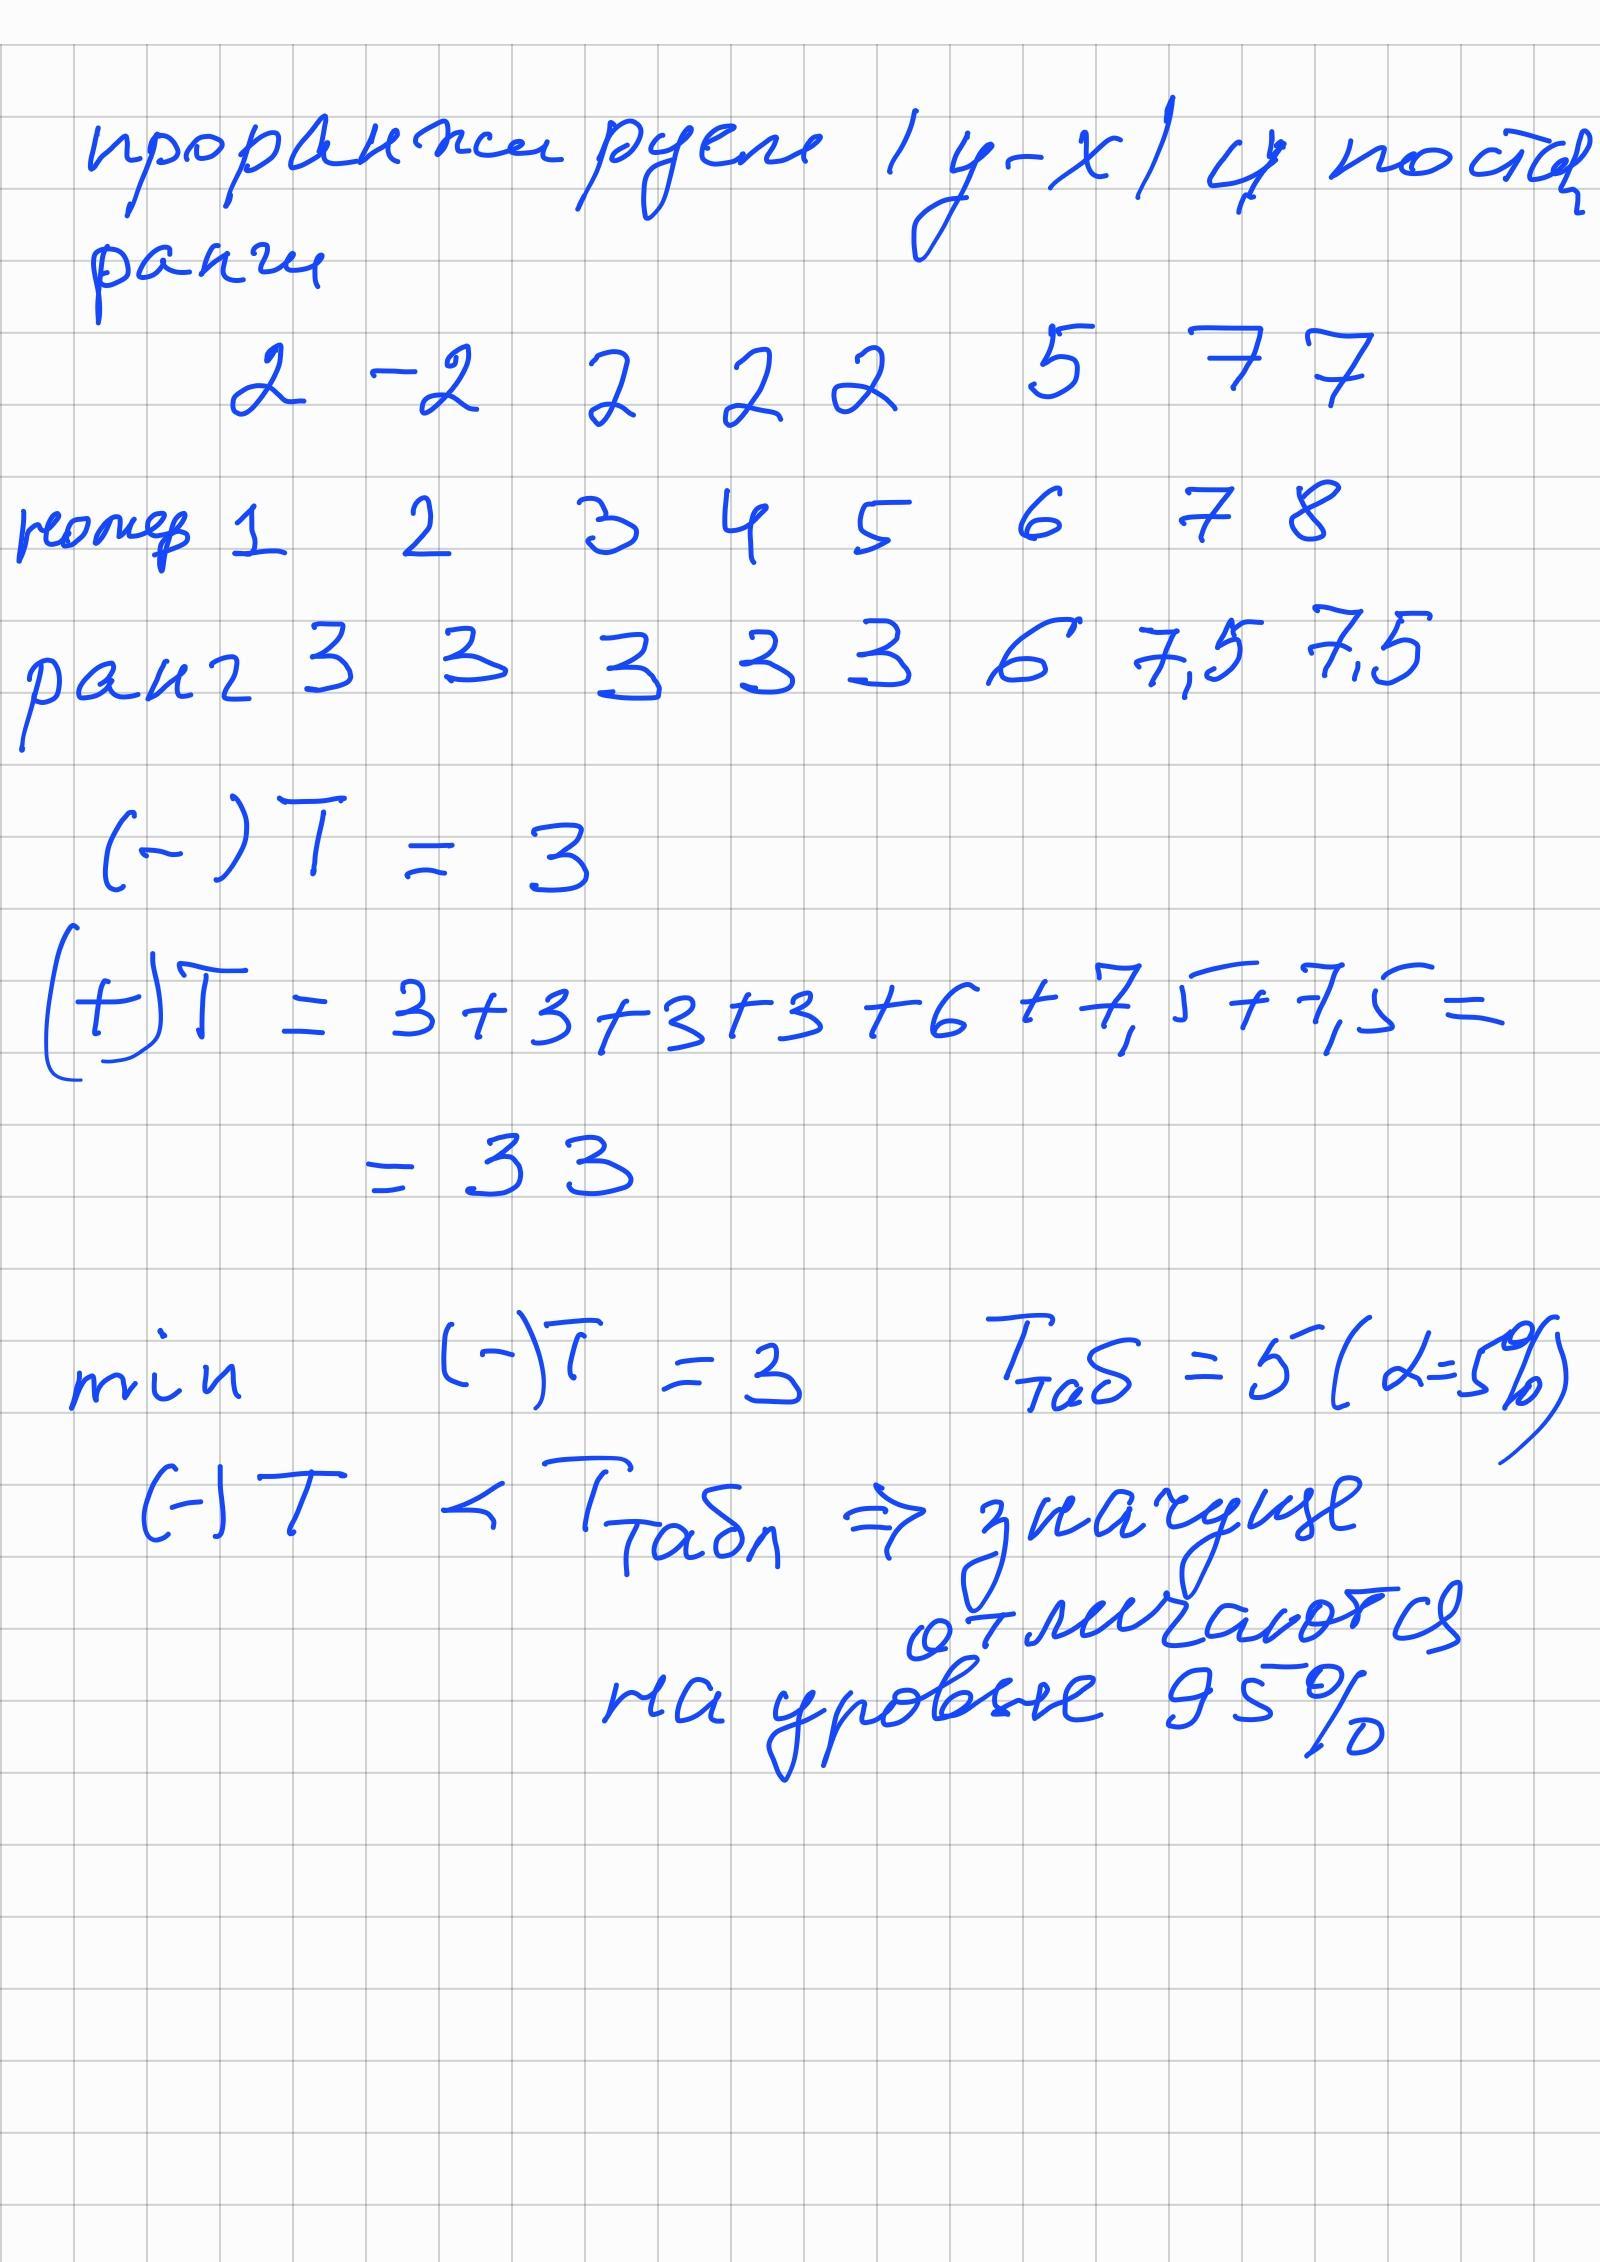 проранжируем |y-x| и постав
ранги
2 -2 2 2 2 5 7 7
номер 1 2 3 4 5 6 7 8
ранг 3 3 3 3 3 6 7,5 7,5
(-)T = 3
(+)T = 3+3+3+3+6+7,5+7,5=
= 33
min (-)T = 3 Tтаб = 5 (α=5%)
(-)T < Tтабл ⇒ значуще
отличаются
на уровне 95%